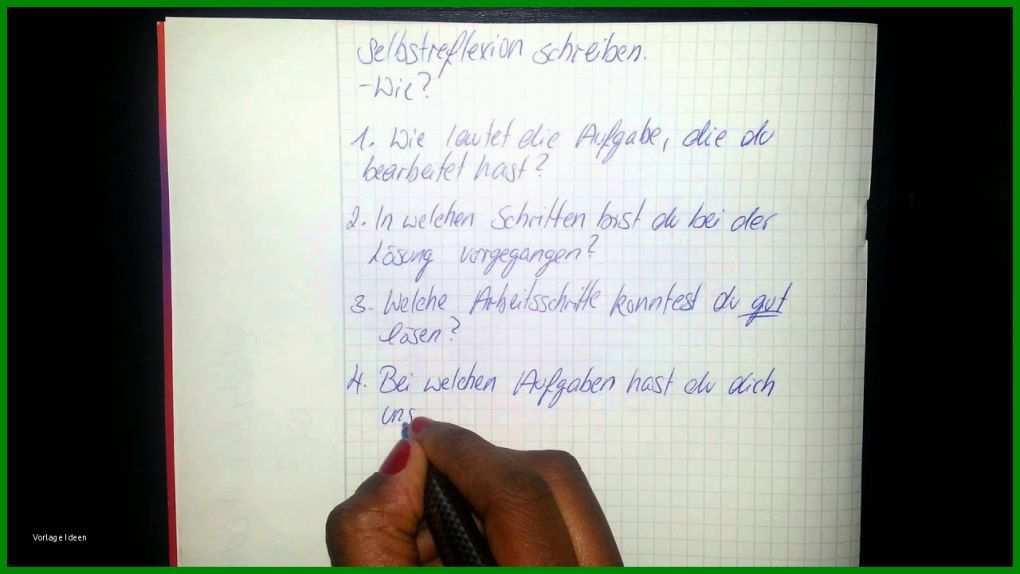 Selbstreflexion schreiben.
-Wie?
1. Wie lautet die Aufgabe, die du
bearbeitet hast?
2. In welchen Schritten bist du bei der
Lösung vorgegangen?
3. Welche Arbeitsschritte konntest du gut
lösen?
4. Bei welchen Aufgaben hast du dich
uns
Vorlage Ideen